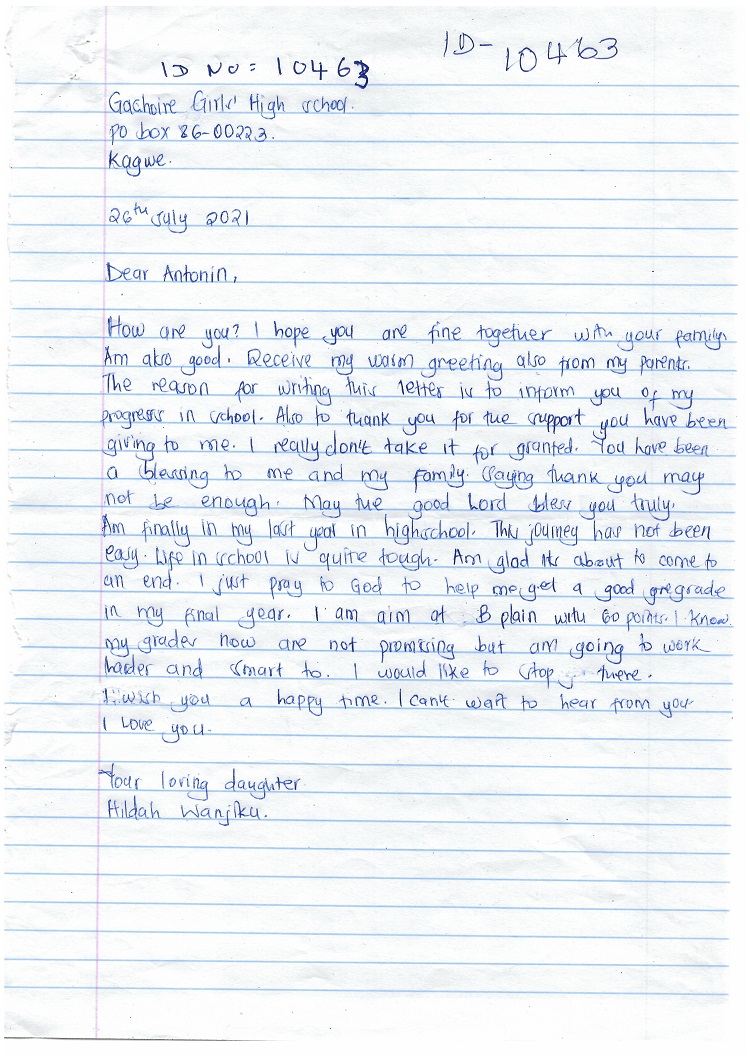 ID - 10463
ID NO = 10463
Gachoire Girls' High school.
PO box 86-00223.
Kagwe.
26th July 2021
Dear Antonin,
How are you? I hope you are fine together with your family.
Am also good. Receive my warm greeting also from my parents.
The reason for writing this letter is to inform you of my
progress in school. Also to thank you for the support you have been
giving to me. I really don't take it for granted. You have been
a blessing to me and my family. Saying thank you may
not be enough. May the good Lord bless you truly.
Am finally in my last year in highschool. This journey has not been
easy. Life in school is quite tough. Am glad its about to come to
an end. I just pray to God to help me get a good gregrade
in my final year. I am aim at B plain with 60 points. I know
my grades now are not promising but am going to work
harder and smart to. I would like to stop there.
I wish you a happy time. I can't wait to hear from you
I Love you.
Your loving daughter
Hildah Wanjiku.